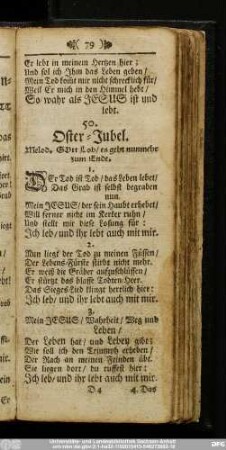 79
Er lebt in meinem Hertzen hier:
Und sol ich Ihm das Leben geben/
Mein Tod komt mir nicht schrecklich für/
Weil Er mich in den Himmel hebt/
So wahr als JESUS ist und
lebt.
50.
Oster-Jubel.
Melod. GOtt Lob/ es geht nunmehr
zum Ende.
1.
DEr Tod ist Tod/ das Leben lebet/
Das Grab ist selbst begraben
nun.
Mein JESUS/ der sein Haubt erhebet/
Will ferner nicht im Kerker ruhn/
Und stellt mir diese Losung für:
Ich leb/ und ihr lebt auch mit mir.
2.
Nun liegt der Tod zu meinen Füssen/
Der Lebens-Fürste stirbt nicht mehr.
Er weiß die Gräber aufzuschliessen/
Er stürzt das blasse Todten-Heer.
Das Sieges-Lied klingt herrlich hier:
Ich leb/ und ihr lebt auch mit mir.
3.
Mein JESUS/ Wahrheit/ Weg und
Leben/
Der Leben hat/ und Leben gibt:
Wie soll ich den Triumph erheben/
Der Rach an meinen Feinden übt.
Sie liegen dort/ du ruffest hier:
Ich leb/ und ihr lebt auch mit mir.
D 4
4. Das